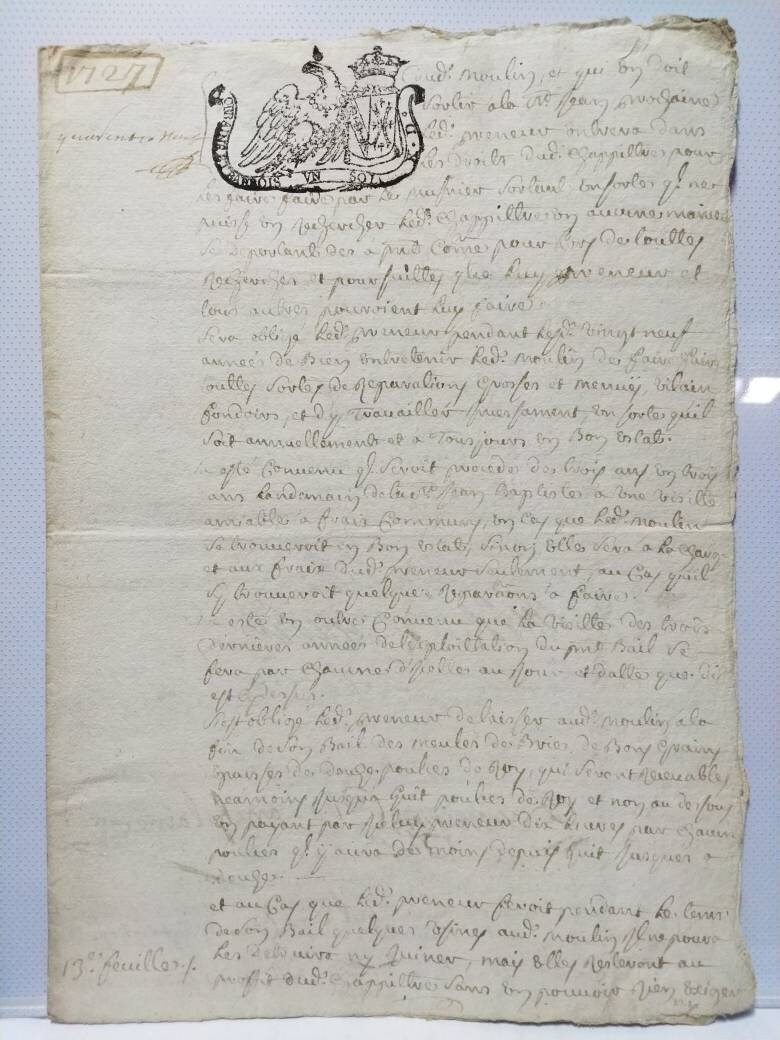 1727
quarente neuf
UN SOL
aud. moulin, et qui en doit
sortir a la St Jean prochaine
led. preneur entrera dans
les droits dud. Chappittre pour
les faire faire par le musnier sortant en sorte q. ne
puisse en rechercher led. Chappittre en aucune maniere
se deportant des a pnt comme pour lors de touttes
recherches et poursuittes que luy preneur et
tous autres pouroient luy faire
sera obligé led. preneur pendant lesd. vingt neuf
années de bien entretenir led. moulin de faire faire
touttes sortes de reparations grosses et menues, vilain
fondoirs, et d'y travailler incessament, en sorte qu'il
soit annuellement et a tousjours en bon estat.
a esté convenu q. seroit procedé de trois ans en trois
ans landemain de la St Jean Baptiste a une visitte
amiable a frais communs, en cas que led. moulin
se trouveroit en bon estat, sinon elle sera a la charge
et aux frais dud. preneur seulement, au cas qu'il
s'y trouveroit quelques reparations a faire.
a esté en outre convenu que la visitte des trois
dernieres années de l'exploittation du pnt bail se
fera par chacune d'icelles au jour et datte que dit
est cy dessus.
s'est obligé led. preneur de laisser aud. moulin a la
fin de son bail des meules de Brie, de bons grains
epaisses de douze poulces de Roy, qui seront recevables
neamoins jusqu'a huit poulces de Roy et non au dessous
en payant par iceluy preneur dix livres par chacun
poulce q. y aura de moins depuis huit jusques a
douze.
et au cas que led. preneur feroit pendant le tems
de son bail quelques usines aud. moulin il ne poura
les detruire ny ruiner, mais elles resteront au
proffit dud. Chappittre sans en pouvoir rien exiger
13e feuillet